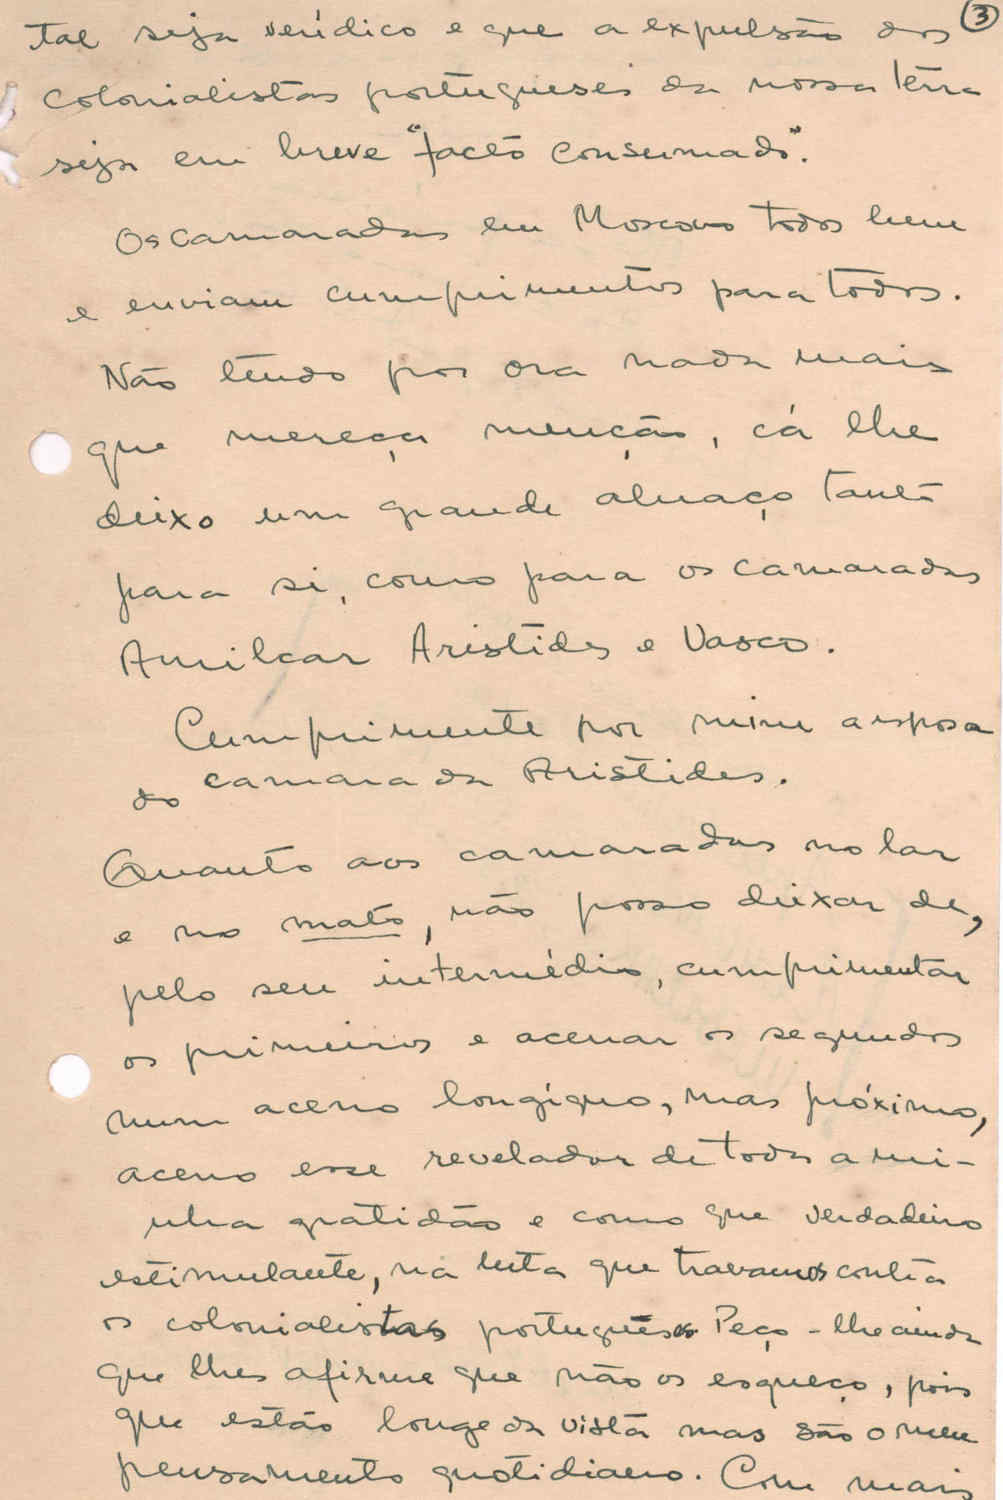 3
tal seja verídico e que a expulsão dos
colonialistas portugueses da nossa terra
seja em breve "facto consumado".
Os camaradas em Moscovo todos bem
e enviam cumprimentos para todos.
Não tendo por ora nada mais
que mereça menção, cá lhe
deixo um grande abraço tanto
para si, como para os camaradas
Amilcar Aristides e Vasco.
Cumprimente por mim a esposa
do camarada Aristides.
Quanto aos camaradas no lar
e no mato, não posso deixar de,
pelo seu intermédio, cumprimentar
os primeiros e acenar os segundos
num aceno longíquo, mas próximo,
aceno esse revelador de toda a mi-
nha gratidão e como que verdadeiro
estimulante, na luta que travamos contra
os colonialistas portuguêses. Peço-lhe ainda
que lhes afirme que não os esqueço, pois
que estão longe da vista mas são o meu
pensamento quotidiano. Com mais